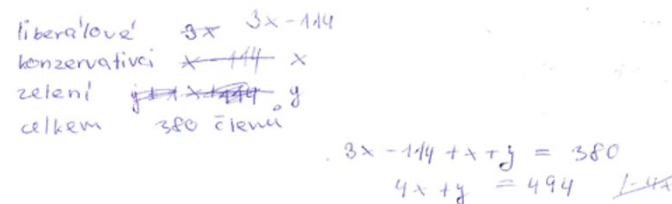 liberálové 3x 3x-114
konzervativci x-114 x
zelení y
celkem 380 členů
3x-114+x+y = 380
4x+y = 494 /-4x